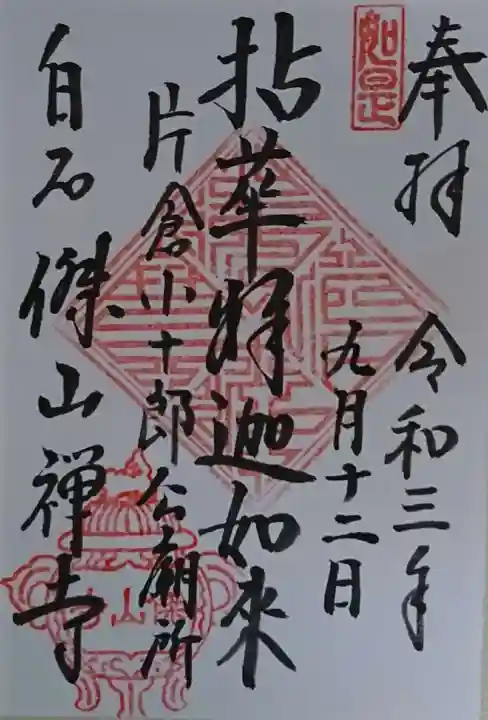 奉拝
令和三年
九月十二日
如是
拈華釋迦如來
片倉小十郎公廟所
白石傑山禅寺